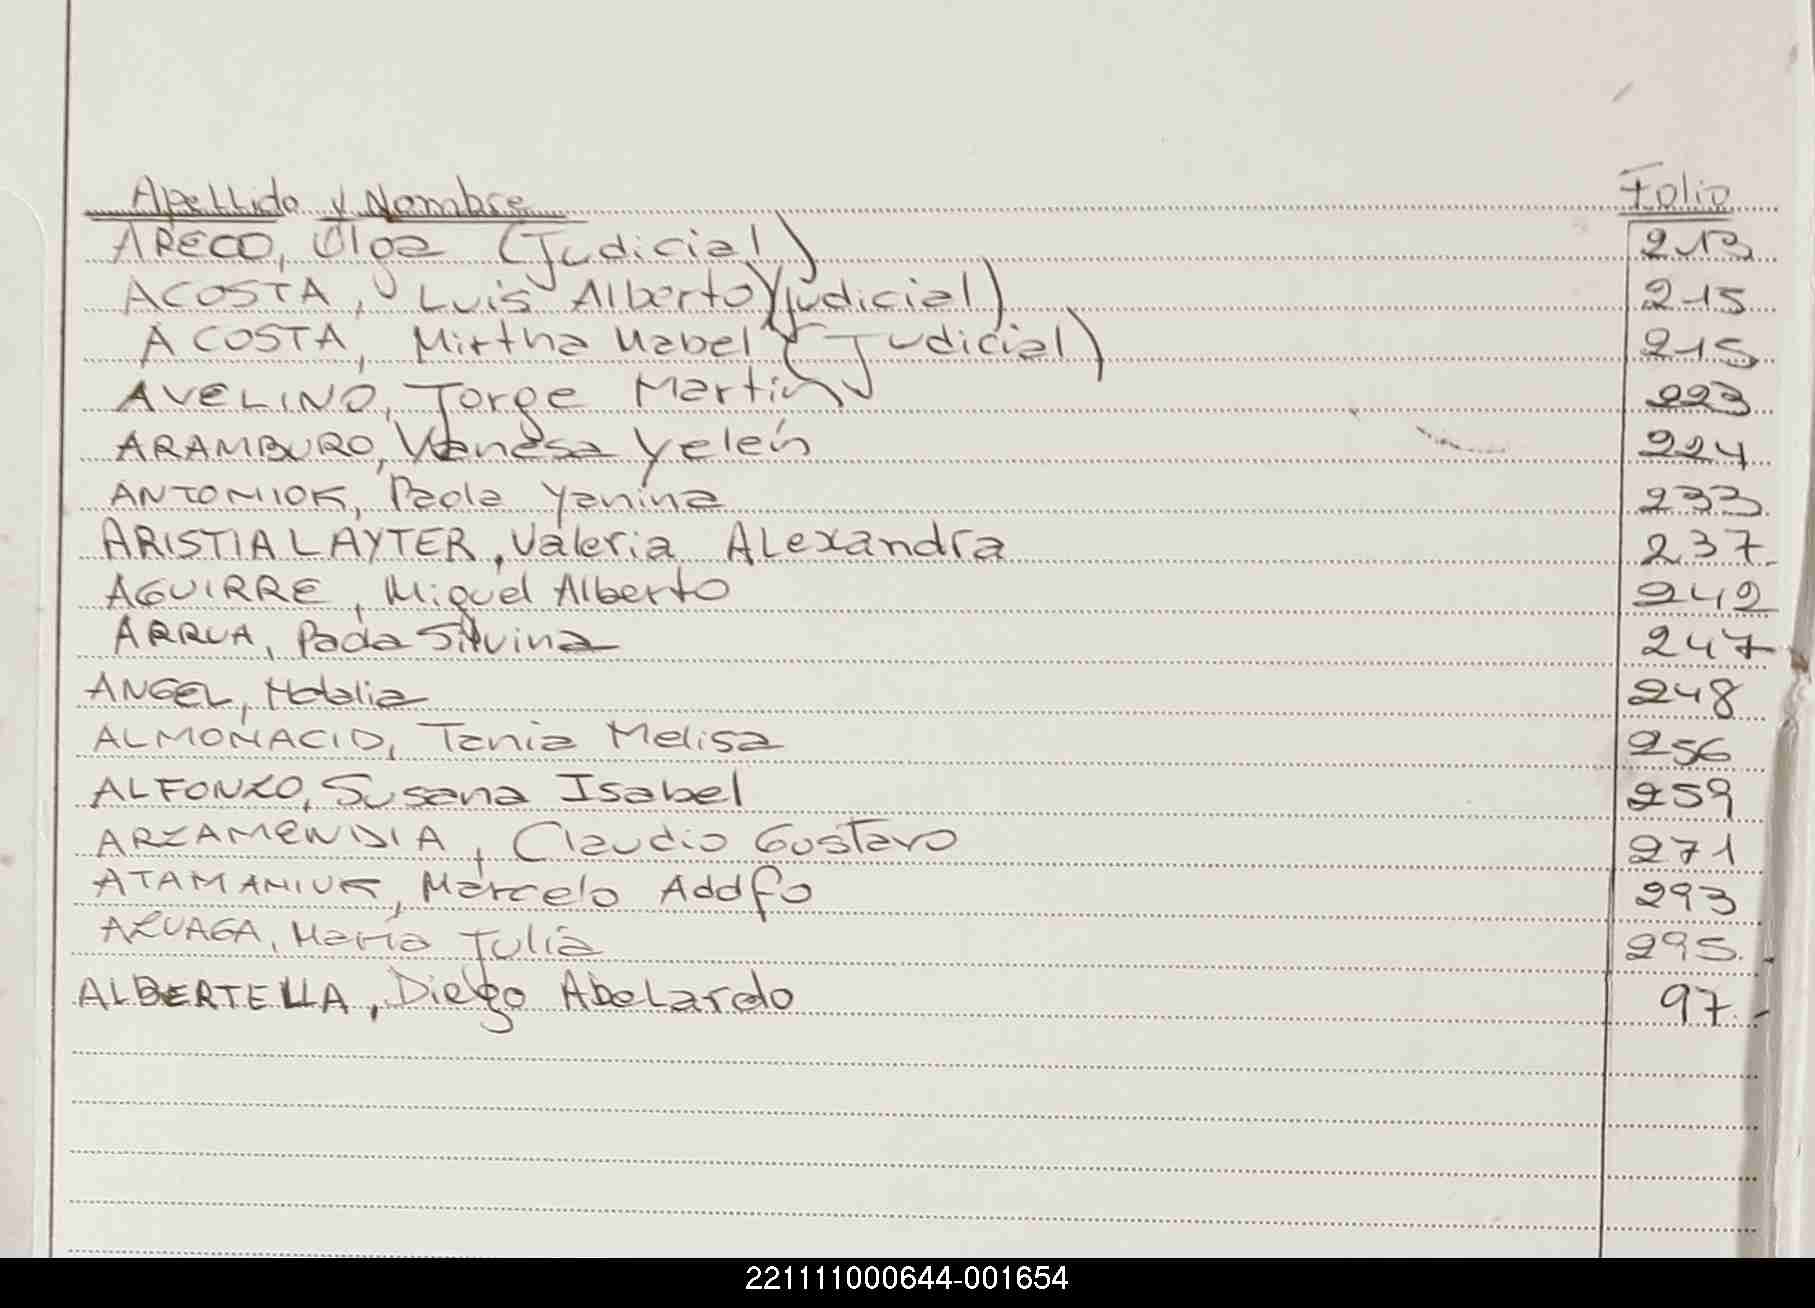 Apellido y Nombre Folio
ARECO, Olga (Judicial) 213
ACOSTA, Luis Alberto (judicial) 215
ACOSTA, Mirtha Mabel (Judicial) 215
AVELINO, Jorge Martin 223
ARAMBURO, Vanesa Yelén 224
ANTONIOK, Paola Yanina 233
ARISTIA LAYTER, Valeria ALexandra 237
AGUIRRE, Miguel Alberto 242
ARRUA, Paola Silvina 247
ANGEL, Natalia 248
ALMONACID, Tania Melisa 256
ALFONZO, Susana Isabel 259
ARZAMENDIA, Claudio Gustavo 271
ATAMANIUK, Marcelo Adolfo 293
AZUAGA, María Julia 295
ALBERTELLA, Diego Abelardo 97
221111000644-001654